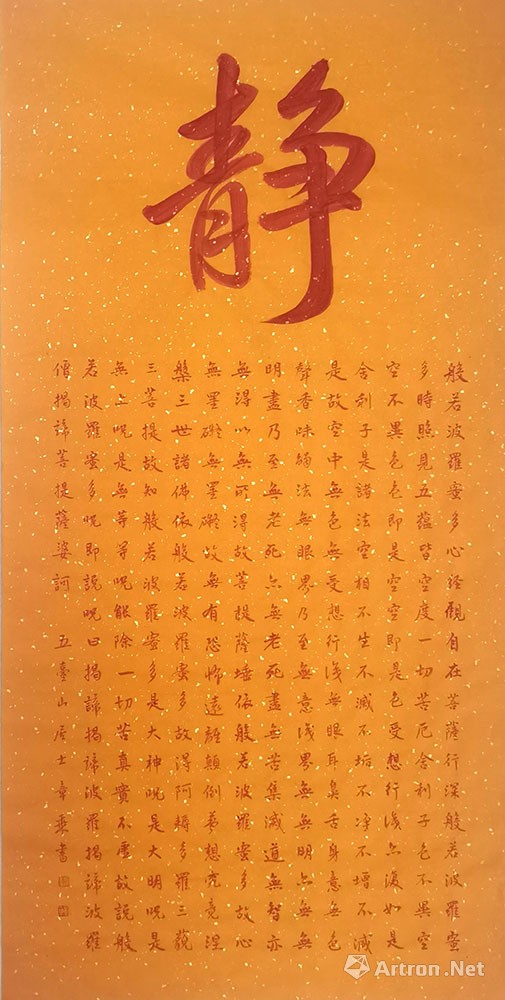 静
般若波羅蜜多心経觀自在菩薩行深般若波羅蜜
多時照見五蘊皆空度一切苦厄舍利子色不異空
空不異色色即是空空即是色受想行識亦復如是
舍利子是諸法空相不生不滅不垢不淨不增不減
是故空中無色無受想行識無眼耳鼻舌身意無色
聲香味觸法無眼界乃至無意識界無無明亦無無
明盡乃至無老死亦無老死盡無苦集滅道無智亦
無得以無所得故菩提薩埵依般若波羅蜜多故心
無罣礙無罣礙故無有恐怖遠離顛倒夢想究竟涅
槃三世諸佛依般若波羅蜜多故得阿耨多羅三藐
三菩提故知般若波羅蜜多是大神呪是大明呪是
無上呪是無等等呪能除一切苦真實不虛故説般
若波羅蜜多呪即説呪曰揭諦揭諦波羅揭諦波羅
僧揭諦菩提薩婆訶 五臺山居士章書
Artron.Net